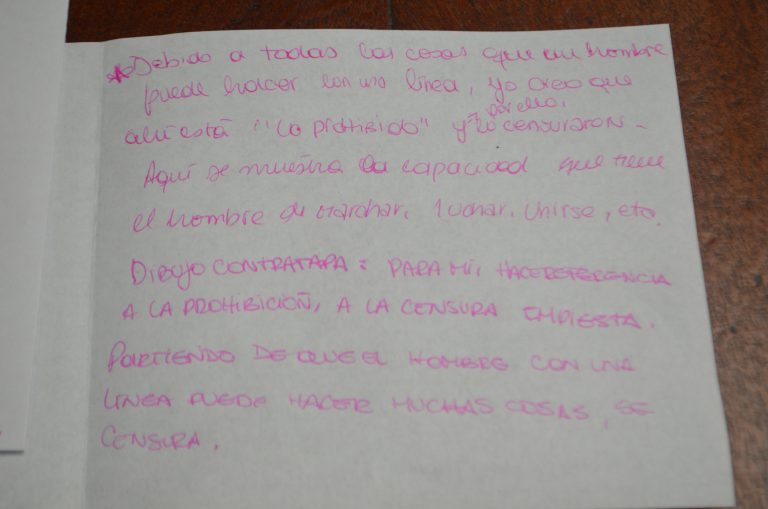 * Debido a todas las cosas que un hombre
puede hacer con una línea, yo creo que
por ello,
ahí está "lo prohibido" y lo censuraron.
Aquí se muestra la capacidad que tiene
el hombre de marchar, luchar, unirse, etc.
DIBUJO CONTRATAPA: PARA MÍ, HACE REFERENCIA
A LA PROHIBICIÓN, A LA CENSURA IMPUESTA.
PARTIENDO DE QUE EL HOMBRE CON UNA
LINEA PUEDE HACER MUCHAS COSAS, SE
CENSURA.